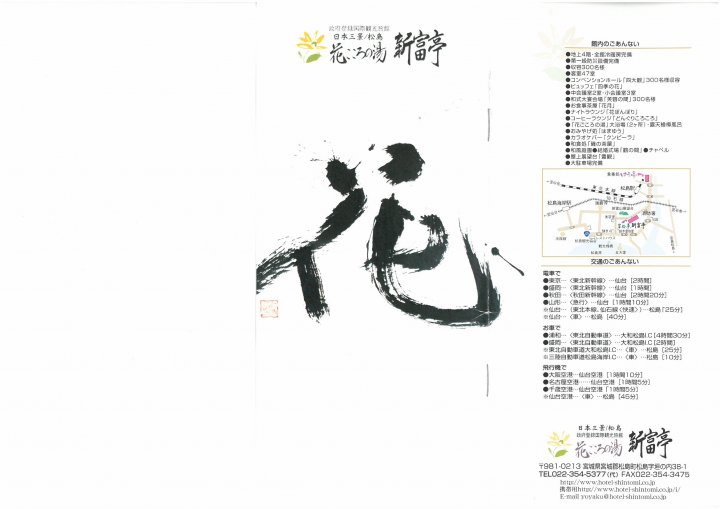 政府登録国際観光旅館
日本三景/松島
花ごころの湯 新富亭
花
館内のごあんない
●地上4階・全館冷暖房完備
●第一級防災設備完備
●収容300名様
●客室47室
●コンベンションホール「四大観」300名様収容
●ビュッフェ「四季の花」
●中会議室2室・小会議室3室
●和式大宴会場「芙蓉の間」300名様
●お食事茶房「花月」
●ナイトラウンジ「花まんぼり」
●コーヒーラウンジ「どんぐりころころ」
●「花ごころの湯」大浴場(2ヶ所)・露天檜樽風呂
●おみやげ処「はまゆう」
●カラオケバー「クンビーラ」
●和喜処「磯の茶屋」
●和風庭園●結婚式場「鶴の間」●チャペル
●屋上展望台「霊観」
●大駐車場完備
松島駅
東北本線
仙石線
松島海岸駅
新富亭
交通のごあんない
電車で
●東京…〈東北新幹線〉…仙台[2時間]
●盛岡…〈東北新幹線〉…仙台[1時間]
●秋田…〈秋田新幹線〉…仙台[2時間20分]
●山形…〈急行〉…仙台[1時間10分]
※仙台…〈東北本線、仙石線〈快速〉〉…松島「25分]
※仙台…〈車〉…松島[40分]
お車で
●浦和…〈東北自動車道〉…大和松島I.C[4時間30分]
●盛岡…〈東北自動車道〉…大和松島I.C[2時間]
※東北自動車道大和松島I.C…〈車〉…松島[25分]
※三陸自動車道松島海岸I.C…〈車〉…松島[10分]
飛行機で
●大阪空港…仙台空港[1時間10分]
●名古屋空港……仙台空港[1時間5分]
●千歳空港…仙台空港「1時間5分]
※仙台空港…〈車〉…松島[45分]
日本三景/松島
政府登録国際観光旅館
花ごころの湯 新富亭
〒981-0213 宮城県宮城郡松島町松島字垣の内38-1
TEL022-354-5377(代) FAX022-354-3475
http://www.hotel-shintomi.co.jp/
携帯用http://www.hotel-shintomi.co.jp/i/
E-mail yoyaku@hotel-shintomi.co.jp